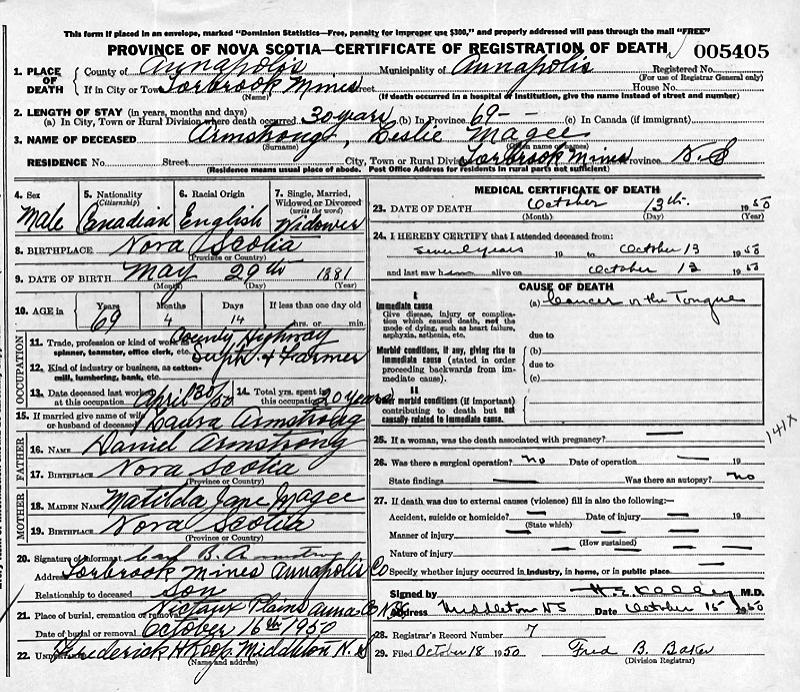 This form if placed in an envelope, marked "Dominion Statistics—Free, penalty for improper use $300," and properly addressed will pass through the mail "FREE"
PROVINCE OF NOVA SCOTIA—CERTIFICATE OF REGISTRATION OF DEATH 005405
1. PLACE OF DEATH County of Annapolis Municipality of Annapolis Registered No.
(For use of Registrar General only)
If in City or Town Torbrook Mines Street House No.
(Name) (If death occurred in a hospital or institution, give the name instead of street and number)
2. LENGTH OF STAY (in years, months and days)
(a) In City, Town or Rural Division where death occurred 30 years (b) In Province 69 - - (c) In Canada (if immigrant)
3. NAME OF DECEASED Armstrong, Leslie Magee
(Surname)
RESIDENCE No. Street City, Town or Rural Division Torbrook Mines Province N.S
(Residence means usual place of abode. Post Office Address for residents in rural parts not sufficient)
4. Sex Male
5. Nationality (Citizenship) Canadian
6. Racial Origin English
7. Single, Married, Widowed or Divorced (write the word) Widower
8. BIRTHPLACE Nova Scotia
(Province or Country)
9. DATE OF BIRTH May 29th 1881
(Month) (Day) (Year)
10. AGE in Years 69 Months 4 Days 14 If less than one day old hrs. or min.
OCCUPATION
11. Trade, profession or kind of work as spinner, teamster, office clerk, etc. County Highway Supt. & Farmer
12. Kind of industry or business, as cotton-mill, lumbering, bank, etc.
13. Date deceased last worked at this occupation April 30/50
14. Total yrs. spent in this occupation 20 years
15. If married give name of wife or husband of deceased Laura Armstrong
FATHER
16. NAME Daniel Armstrong
17. BIRTHPLACE Nova Scotia
(Province or Country)
MOTHER
18. MAIDEN NAME Matilda Jane Magee
19. BIRTHPLACE Nova Scotia
(Province or Country)
20. Signature of informant Carl B. Armstrong
Address Torbrook Mines Annapolis Co
Relationship to deceased Son
21. Place of burial, cremation or removal Nictaux Plains Anna. Co N.S.
Date of burial or removal October 16th 1950
22. Undertaker Frederick H Roop Middleton N.S
(Name and address)
MEDICAL CERTIFICATE OF DEATH
23. DATE OF DEATH October 13th 1950
(Month) (Day) (Year)
24. I HEREBY CERTIFY that I attended deceased from:
Several years 19 to October 13 1950
and last saw h alive on October 13 1950
CAUSE OF DEATH
I
Immediate cause
Give disease, injury or complication which caused death, not the mode of dying, such as heart failure, asphyxia, asthenia, etc.
(a) Cancer of the Tongue
due to
Morbid conditions, if any, giving rise to immediate cause (stated in order proceeding backwards from immediate cause).
(b)
due to
(c)
II
Other morbid conditions (if important) contributing to death but not causally related to immediate cause.
141X
25. If a woman, was the death associated with pregnancy? —
26. Was there a surgical operation? No Date of operation — 19
State findings — Was there an autopsy? No
27. If death was due to external causes (violence) fill in also the following:—
Accident, suicide or homicide? — Date of injury — 19
(State which)
Manner of injury —
(How sustained)
Nature of injury —
Specify whether injury occurred in industry, in home, or in public place —
Signed by H. E. Kelley M.D.
Address Middleton NS Date October 15 1950
28. Registrar's Record Number 7
29. Filed October 18 1950 Fred B. Baker
(Division Registrar)